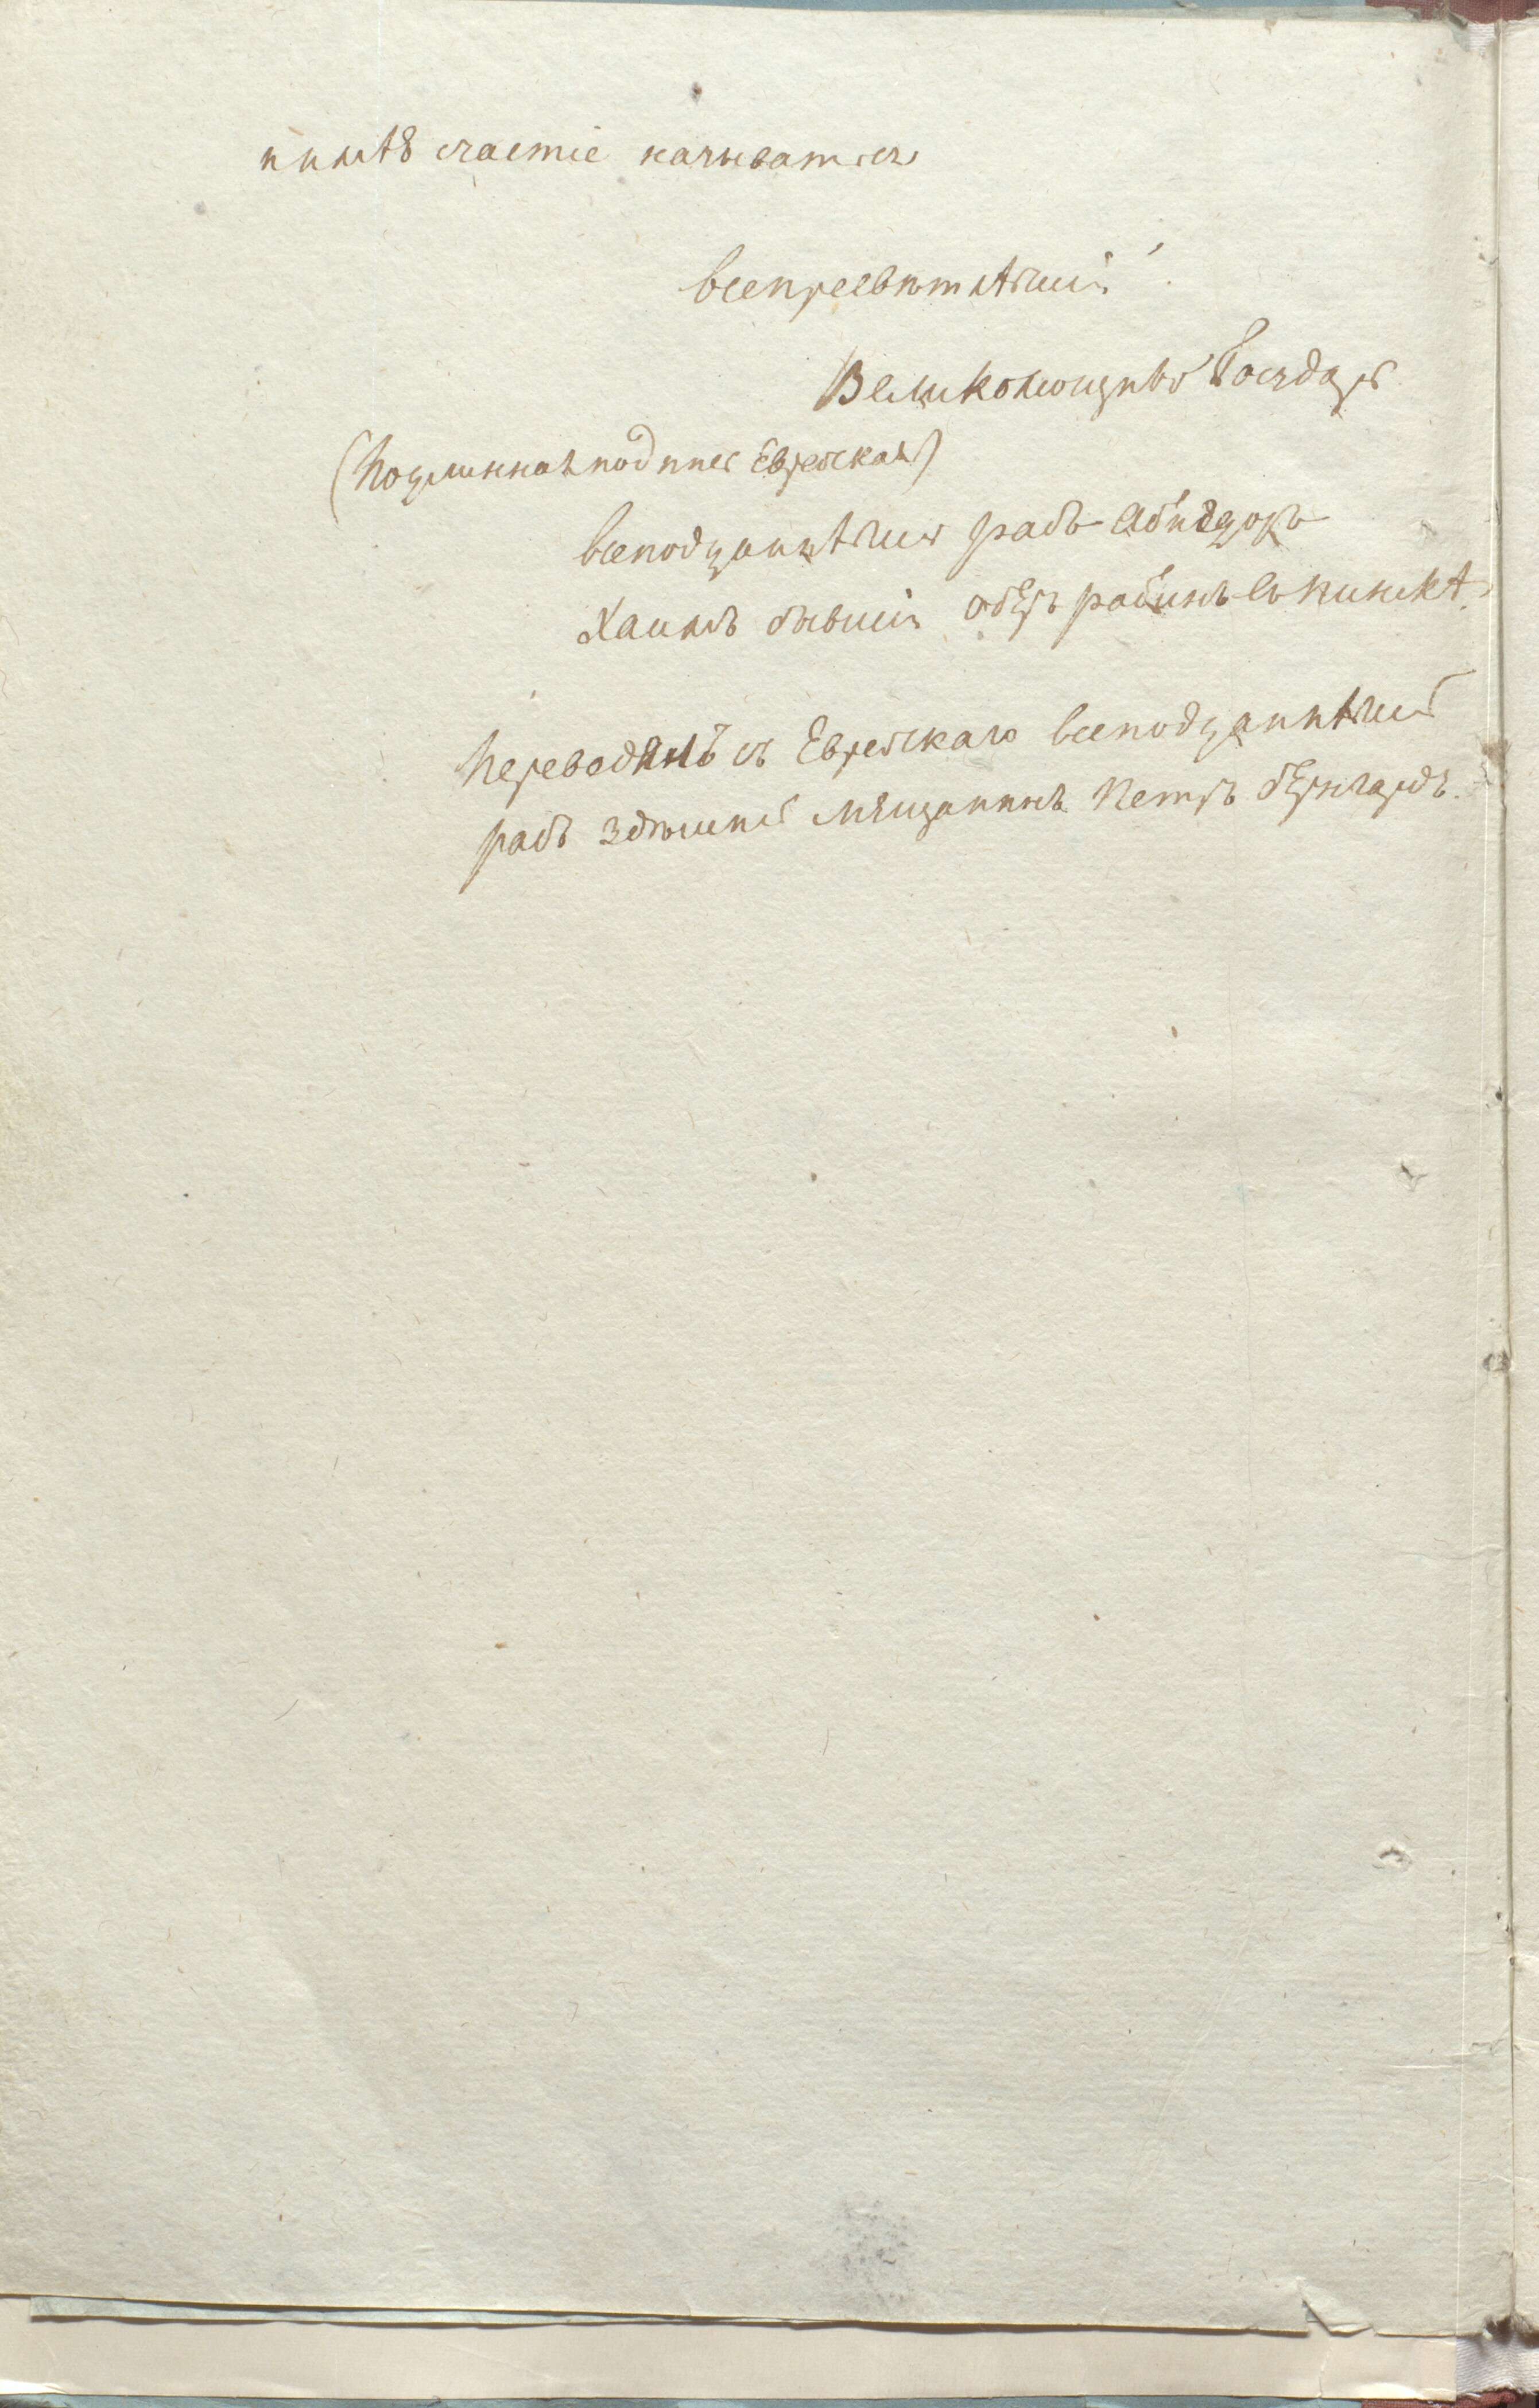 имѣю счастіе називатся
всепресвѣтлѣйшій
Великомощный Государь
(подлинная подпись Еврейская)
всеподданнѣйшій рабъ Абигдоръ
Хаимъ бывшій оберъ рабинъ въ пинскѣ
переводилъ съ Еврейскаго всеподданнѣйшій
рабъ здѣшній мѣщанинъ Петръ бернгардъ.